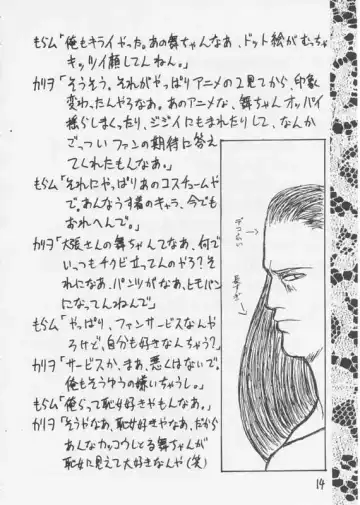 もらム「俺もキライやった。あの舞ちゃんなぁ、ドット絵がむっちゃ
キッツイ顔してんねん。」
カリヲ「そうそう。それがやっぱりアニメの2見てから、印象
変わったんやろなぁ。あのアニメな、舞ちゃんオッパイ
揺らしまくったり、ジジイにもまれたりして、なんか
でっつい ファンの期待に答え
てくれたもんなあ。」
もらム「それにやっぱりあのコスチュームや
で。あんなうす着のキャラ、今でも
おれへんで。」
カリヲ「大張さんの舞ちゃんてなあ、何で
いっつもチクビ立ってんのやろ?そ
れになあ、パンツがなあ、ヒモパン
になってんねんで」
もらム「やっぱり、ファンサービスなんや
ろけど、自分も好きなんちゃう?」
カリヲ「サービスか、まあ、悪くはないで。
俺もそうゆうの嫌いちゃうし。」
もらム「俺らって恥女好きやもんなあ。」
カリヲ「そうやなあ、恥女好きやなあ、だから
あんなカッコウしとる舞ちゃんが
恥女に見えて大好きなんや(笑)
デコない→
長すぎ
14